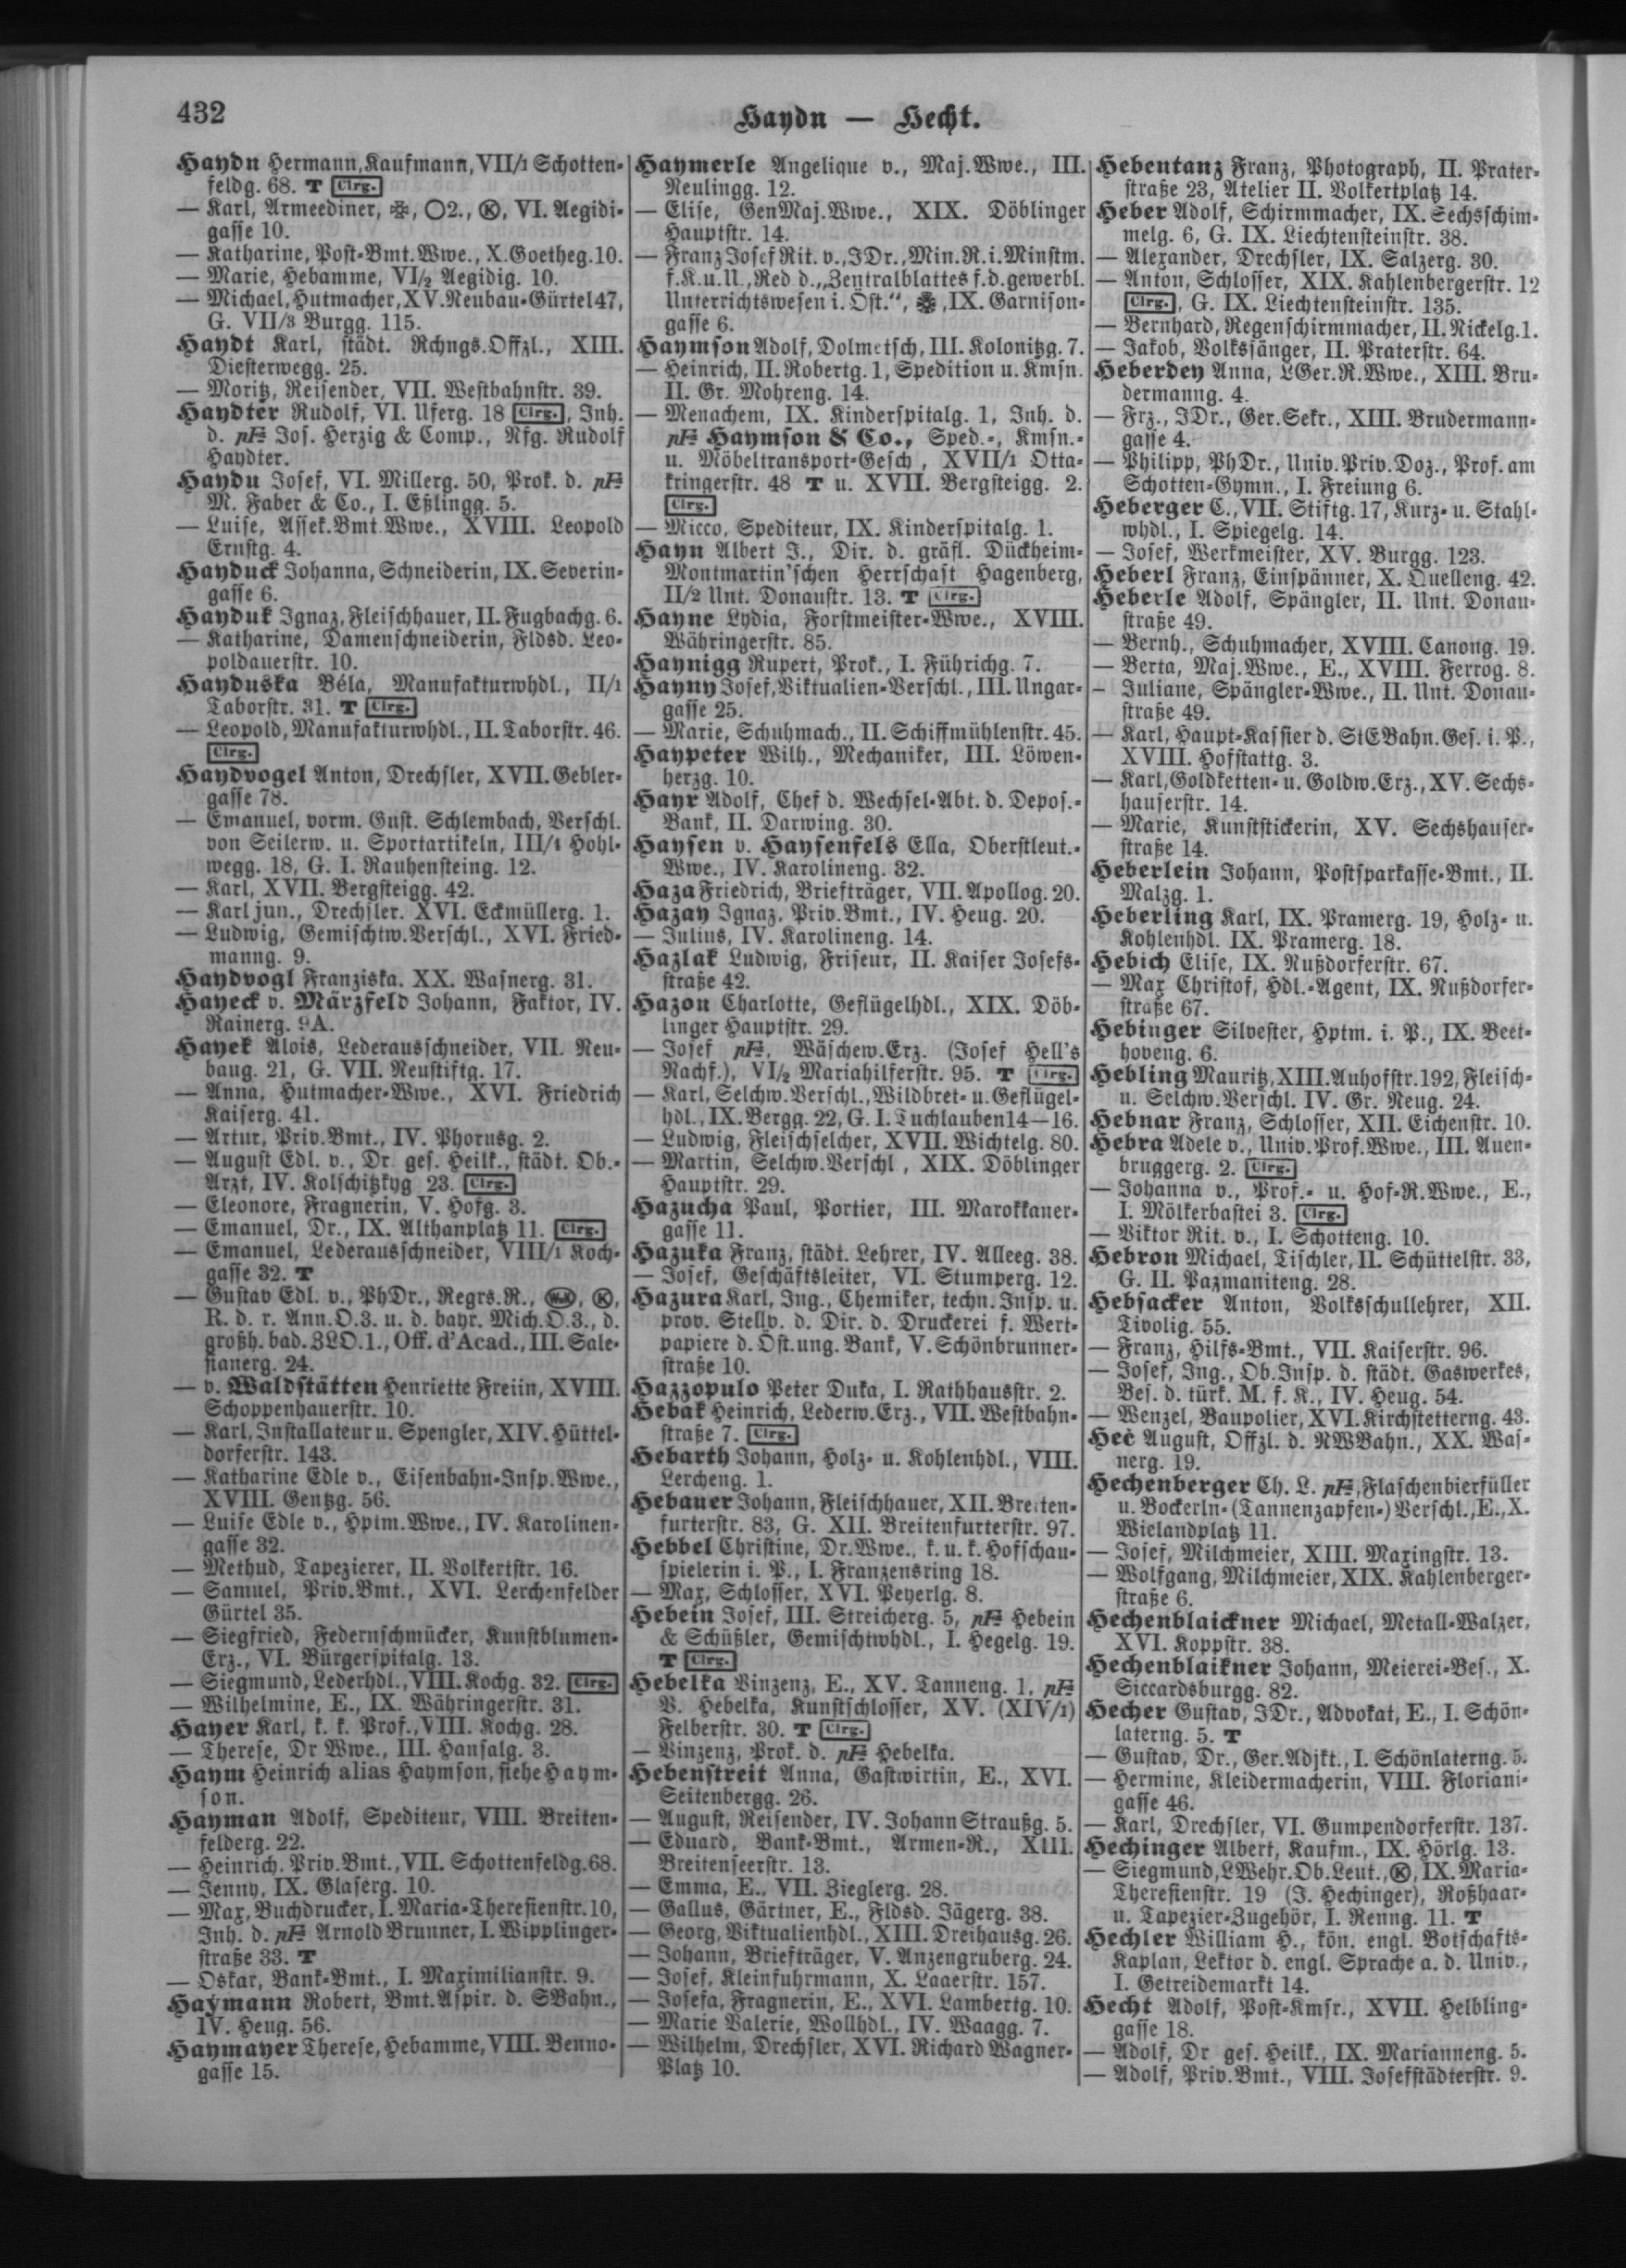 432
Haydn — Hecht.
Haydn Hermann, Kaufmann, VII/1 Schotten-
feldg. 68. T Clrg.
— Karl, Armeediner, ✠, ○2., Ⓚ, VI. Aegidi-
gasse 10.
— Katharine, Post-Bmt.Wwe., X. Goetheg. 10.
— Marie, Hebamme, VI/2 Aegidig. 10.
— Michael, Hutmacher, XV. Neubau-Gürtel 47,
G. VII/3 Burgg. 115.
Haydt Karl, städt. Rchngs.Offzl., XIII.
Diesterwegg. 25.
— Moritz, Reisender, VII. Westbahnstr. 39.
Haydter Rudolf, VI. Uferg. 18 Clrg., Inh.
d. pF Jos. Herzig & Comp., Nfg. Rudolf
Haydter.
Haydu Josef, VI. Millerg. 50, Prok. d. pF
M. Faber & Co., I. Eßlingg. 5.
— Luise, Assek.Bmt.Wwe., XVIII. Leopold
Ernstg. 4.
Hayduck Johanna, Schneiderin, IX. Severin-
gasse 6.
Hayduk Ignaz, Fleischhauer, II. Fugbachg. 6.
— Katharine, Damenschneiderin, Fldsd. Leo-
poldauerstr. 10.
Hayduska Béla, Manufakturwhdl., II/1
Taborstr. 31. T Clrg.
— Leopold, Manufakturwhdl., II. Taborstr. 46.
Clrg.
Haydvogel Anton, Drechsler, XVII. Gebler-
gasse 78.
— Emanuel, vorm. Gust. Schlembach, Verschl.
von Seilerw. u. Sportartikeln, III/1 Hohl-
wegg. 18, G. I. Rauhensteing. 12.
— Karl, XVII. Bergsteigg. 42.
— Karl jun., Drechsler. XVI. Eckmüllerg. 1.
— Ludwig, Gemischtw.Verschl., XVI. Fried-
manng. 9.
Haydvogl Franziska. XX. Wasnerg. 31.
Hayeck v. Märzfeld Johann, Faktor, IV.
Rainerg. 9A.
Hayek Alois, Lederausschneider, VII. Neu-
baug. 21, G. VII. Neustiftg. 17.
— Anna, Hutmacher-Wwe., XVI. Friedrich
Kaiserg. 41.
— Artur, Priv.Bmt., IV. Phorusg. 2.
— August Edl. v., Dr. ges. Heilk., städt. Ob.-
Arzt, IV. Kolschitzkyg 23. Clrg.
— Eleonore, Fragnerin, V. Hofg. 3.
— Emanuel, Dr., IX. Althanplatz 11. Clrg.
— Emanuel, Lederausschneider, VIII/1 Koch-
gasse 32. T
— Gustav Edl. v., PhDr., Regrs.R., Ⓚ,
R. d. r. Ann.O.3. u. d. bayr. Mich.O.3., d.
großh. bad. ZLO.1., Off. d'Acad., III. Sale-
sianerg. 24.
— v. Waldstätten Henriette Freiin, XVIII.
Schoppenhauerstr. 10.
— Karl, Installateur u. Spengler, XIV. Hüttel-
dorferstr. 143.
— Katharine Edle v., Eisenbahn-Insp.Wwe.,
XVIII. Gentzg. 56.
— Luise Edle v., Hptm.Wwe., IV. Karolinen-
gasse 32.
— Methud, Tapezierer, II. Volkertstr. 16.
— Samuel, Priv.Bmt., XVI. Lerchenfelder
Gürtel 35.
— Siegfried, Federnschmücker, Kunstblumen-
Erz., VI. Bürgerspitalg. 13.
— Siegmund, Lederhdl., VIII. Kochg. 32. Clrg.
— Wilhelmine, E., IX. Währingerstr. 31.
Hayer Karl, k. k. Prof., VIII. Kochg. 28.
— Therese, Dr Wwe., III. Hansalg. 3.
Haym Heinrich alias Haymson, siehe Haym-
son.
Hayman Adolf, Spediteur, VIII. Breiten-
felderg. 22.
— Heinrich. Priv.Bmt., VII. Schottenfeldg. 68.
— Jenny, IX. Glaserg. 10.
— Max, Buchdrucker, I. Maria-Theresienstr. 10,
Inh. d. pF Arnold Brunner, I. Wipplinger-
straße 33. T
— Oskar, Bank-Bmt., I. Maximilianstr. 9.
Haymann Robert, Bmt.Aspir. d. SBahn.,
IV. Heug. 56.
Haymayer Therese, Hebamme, VIII. Benno-
gasse 15.
Haymerle Angelique v., Maj.Wwe., III.
Neulingg. 12.
— Elise, GenMaj.Wwe., XIX. Döblinger
Hauptstr. 14.
— Franz Josef Rit. v., JDr., Min.R. i. Minstm.
f. K. u. U., Red d. „Zentralblattes f. d. gewerbl.
Unterrichtswesen i. Öst.“, ✠, IX. Garnison-
gasse 6.
Haymson Adolf, Dolmetsch, III. Kolonitzg. 7.
— Heinrich, II. Robertg. 1, Spedition u. Kmsn.
II. Gr. Mohreng. 14.
— Menachem, IX. Kinderspitalg. 1, Inh. d.
pF Haymson & Co., Sped.-, Kmsn.-
u. Möbeltransport-Gesch, XVII/1 Otta-
kringerstr. 48 T u. XVII. Bergsteigg. 2.
Clrg.
— Micco, Spediteur, IX. Kinderspitalg. 1.
Hayn Albert J., Dir. d. gräfl. Dückheim-
Montmartin'schen Herrschaft Hagenberg,
II/2 Unt. Donaustr. 13. T Clrg.
Hayne Lydia, Forstmeister-Wwe., XVIII.
Währingerstr. 85.
Haynigg Rupert, Prok., I. Führichg. 7.
Hayny Josef, Viktualien-Verschl., III. Ungar-
gasse 25.
— Marie, Schuhmach., II. Schiffmühlenstr. 45.
Haypeter Wilh., Mechaniker, III. Löwen-
herzg. 10.
Hayr Adolf, Chef d. Wechsel-Abt. d. Depos.-
Bank, II. Darwing. 30.
Haysen v. Haysenfels Ella, Oberstleut.-
Wwe., IV. Karolineng. 32.
Haza Friedrich, Briefträger, VII. Apollog. 20.
Hazay Ignaz, Priv.Bmt., IV. Heug. 20.
— Julius, IV. Karolineng. 14.
Hazlak Ludwig, Friseur, II. Kaiser Josefs-
straße 42.
Hazon Charlotte, Geflügelhdl., XIX. Döb-
linger Hauptstr. 29.
— Josef pF, Wäschew.Erz. (Josef Hell's
Nachf.), VI/2 Mariahilferstr. 95. T Clrg.
— Karl, Selchw.Verschl., Wildbret- u. Geflügel-
hdl., IX. Bergg. 22, G. I. Tuchlauben 14—16.
— Ludwig, Fleischselcher, XVII. Wichtelg. 80.
— Martin, Selchw.Verschl, XIX. Döblinger
Hauptstr. 29.
Hazucha Paul, Portier, III. Marokkaner-
gasse 11.
Hazuka Franz, städt. Lehrer, IV. Alleeg. 38.
— Josef, Geschäftsleiter, VI. Stumperg. 12.
Hazura Karl, Ing., Chemiker, techn. Insp. u.
prov. Stellv. d. Dir. d. Druckerei f. Wert-
papiere d. Öst.ung. Bank, V. Schönbrunner-
straße 10.
Hazzopulo Peter Duka, I. Rathhausstr. 2.
Hebak Heinrich, Lederw.Erz., VII. Westbahn-
straße 7. Clrg.
Hebarth Johann, Holz- u. Kohlenhdl., VIII.
Lercheng. 1.
Hebauer Johann, Fleischhauer, XII. Breiten-
furterstr. 83, G. XII. Breitenfurterstr. 97.
Hebbel Christine, Dr.Wwe., k. u. k. Hofschau-
spielerin i. P., I. Franzensring 18.
— Max, Schlosser, XVI. Peyerlg. 8.
Hebein Josef, III. Streicherg. 5, pF Hebein
& Schüßler, Gemischtwhdl., I. Hegelg. 19.
T Clrg.
Hebelka Vinzenz, E., XV. Tanneng. 1, pF
V. Hebelka, Kunstschlosser, XV. (XIV/1)
Felberstr. 30. T Clrg.
— Vinzenz, Prok. d. pF Hebelka.
Hebenstreit Anna, Gastwirtin, E., XVI.
Seitenbergg. 26.
— August, Reisender, IV. Johann Straußg. 5.
— Eduard, Bank-Bmt., Armen-R., XIII.
Breitenseerstr. 13.
— Emma, E., VII. Zieglerg. 28.
— Gallus, Gärtner, E., Fldsd. Jägerg. 38.
— Georg, Viktualienhdl., XIII. Dreihausg. 26.
— Johann, Briefträger, V. Anzengruberg. 24.
— Josef, Kleinfuhrmann, X. Laaerstr. 157.
— Josefa, Fragnerin, E., XVI. Lambertg. 10.
— Marie Valerie, Wollhdl., IV. Waagg. 7.
— Wilhelm, Drechsler, XVI. Richard Wagner-
Platz 10.
Hebentanz Franz, Photograph, II. Prater-
straße 23, Atelier II. Volkertplatz 14.
Heber Adolf, Schirmmacher, IX. Sechsschim-
melg. 6, G. IX. Liechtensteinstr. 38.
— Alexander, Drechsler, IX. Salzerg. 30.
— Anton, Schlosser, XIX. Kahlenbergerstr. 12
Clrg., G. IX. Liechtensteinstr. 135.
— Bernhard, Regenschirmmacher, II. Nickelg. 1.
— Jakob, Volkssänger, II. Praterstr. 64.
Heberdey Anna, LGer.R.Wwe., XIII. Bru-
dermanng. 4.
— Frz., JDr., Ger.Sekr., XIII. Brudermann-
gasse 4.
— Philipp, PhDr., Univ.Priv.Doz., Prof. am
Schotten-Gymn., I. Freiung 6.
Heberger C., VII. Stiftg. 17, Kurz- u. Stahl-
whdl., I. Spiegelg. 14.
— Josef, Werkmeister, XV. Burgg. 123.
Heberl Franz, Einspänner, X. Quelleng. 42.
Heberle Adolf, Spängler, II. Unt. Donau-
straße 49.
— Bernh., Schuhmacher, XVIII. Canong. 19.
— Berta, Maj.Wwe., E., XVIII. Ferrog. 8.
— Juliane, Spängler-Wwe., II. Unt. Donau-
straße 49.
— Karl, Haupt-Kassier d. StEBahn.Ges. i. P.,
XVIII. Hofstattg. 3.
— Karl, Goldketten- u. Goldw.Erz., XV. Sechs-
hauserstr. 14.
— Marie, Kunststickerin, XV. Sechshauser-
straße 14.
Heberlein Johann, Postsparkasse-Bmt., II.
Malzg. 1.
Heberling Karl, IX. Pramerg. 19, Holz- u.
Kohlenhdl. IX. Pramerg. 18.
Hebich Elise, IX. Nußdorferstr. 67.
— Max Christof, Hdl.-Agent, IX. Nußdorfer-
straße 67.
Hebinger Silvester, Hptm. i. P., IX. Beet-
hoveng. 6.
Hebling Mauritz, XIII. Auhofstr. 192, Fleisch-
u. Selchw.Verschl. IV. Gr. Neug. 24.
Hebnar Franz, Schlosser, XII. Eichenstr. 10.
Hebra Adele v., Univ.Prof.Wwe., III. Auen-
bruggerg. 2. Clrg.
— Johanna v., Prof.- u. Hof-R.Wwe., E.,
I. Mölkerbastei 3. Clrg.
— Viktor Rit. v., I. Schotteng. 10.
Hebron Michael, Tischler, II. Schüttelstr. 33,
G. II. Pazmaniteng. 28.
Hebsacker Anton, Volksschullehrer, XII.
Tivolig. 55.
— Franz, Hilfs-Bmt., VII. Kaiserstr. 96.
— Josef, Ing., Ob.Insp. d. städt. Gaswerkes,
Bes. d. türk. M. f. K., IV. Heug. 54.
— Wenzel, Baupolier, XVI. Kirchstetterng. 43.
Heč August, Offzl. d. NWBahn., XX. Was-
nerg. 19.
Hechenberger Ch. L. pF, Flaschenbierfüller
u. Bockerln- (Tannenzapfen-) Verschl., E., X.
Wielandplatz 11.
— Josef, Milchmeier, XIII. Maxingstr. 13.
— Wolfgang, Milchmeier, XIX. Kahlenberger-
straße 6.
Hechenblaickner Michael, Metall-Walzer,
XVI. Koppstr. 38.
Hechenblaikner Johann, Meierei-Bes., X.
Siccardsburgg. 82.
Hecher Gustav, JDr., Advokat, E., I. Schön-
laterng. 5. T
— Gustav, Dr., Ger.Adjkt., I. Schönlaterng. 5.
— Hermine, Kleidermacherin, VIII. Floriani-
gasse 46.
— Karl, Drechsler, VI. Gumpendorferstr. 137.
Hechinger Albert, Kaufm., IX. Hörlg. 13.
— Siegmund, LWehr.Ob.Leut., Ⓚ, IX. Maria-
Theresienstr. 19 (J. Hechinger), Roßhaar-
u. Tapezier-Zugehör, I. Renng. 11. T
Hechler William H., kön. engl. Botschafts-
Kaplan, Lektor d. engl. Sprache a. d. Univ.,
I. Getreidemarkt 14.
Hecht Adolf, Post-Kmsr., XVII. Helbling-
gasse 18.
— Adolf, Dr ges. Heilk., IX. Marianneng. 5.
— Adolf, Priv.Bmt., VIII. Josefstädterstr. 9.